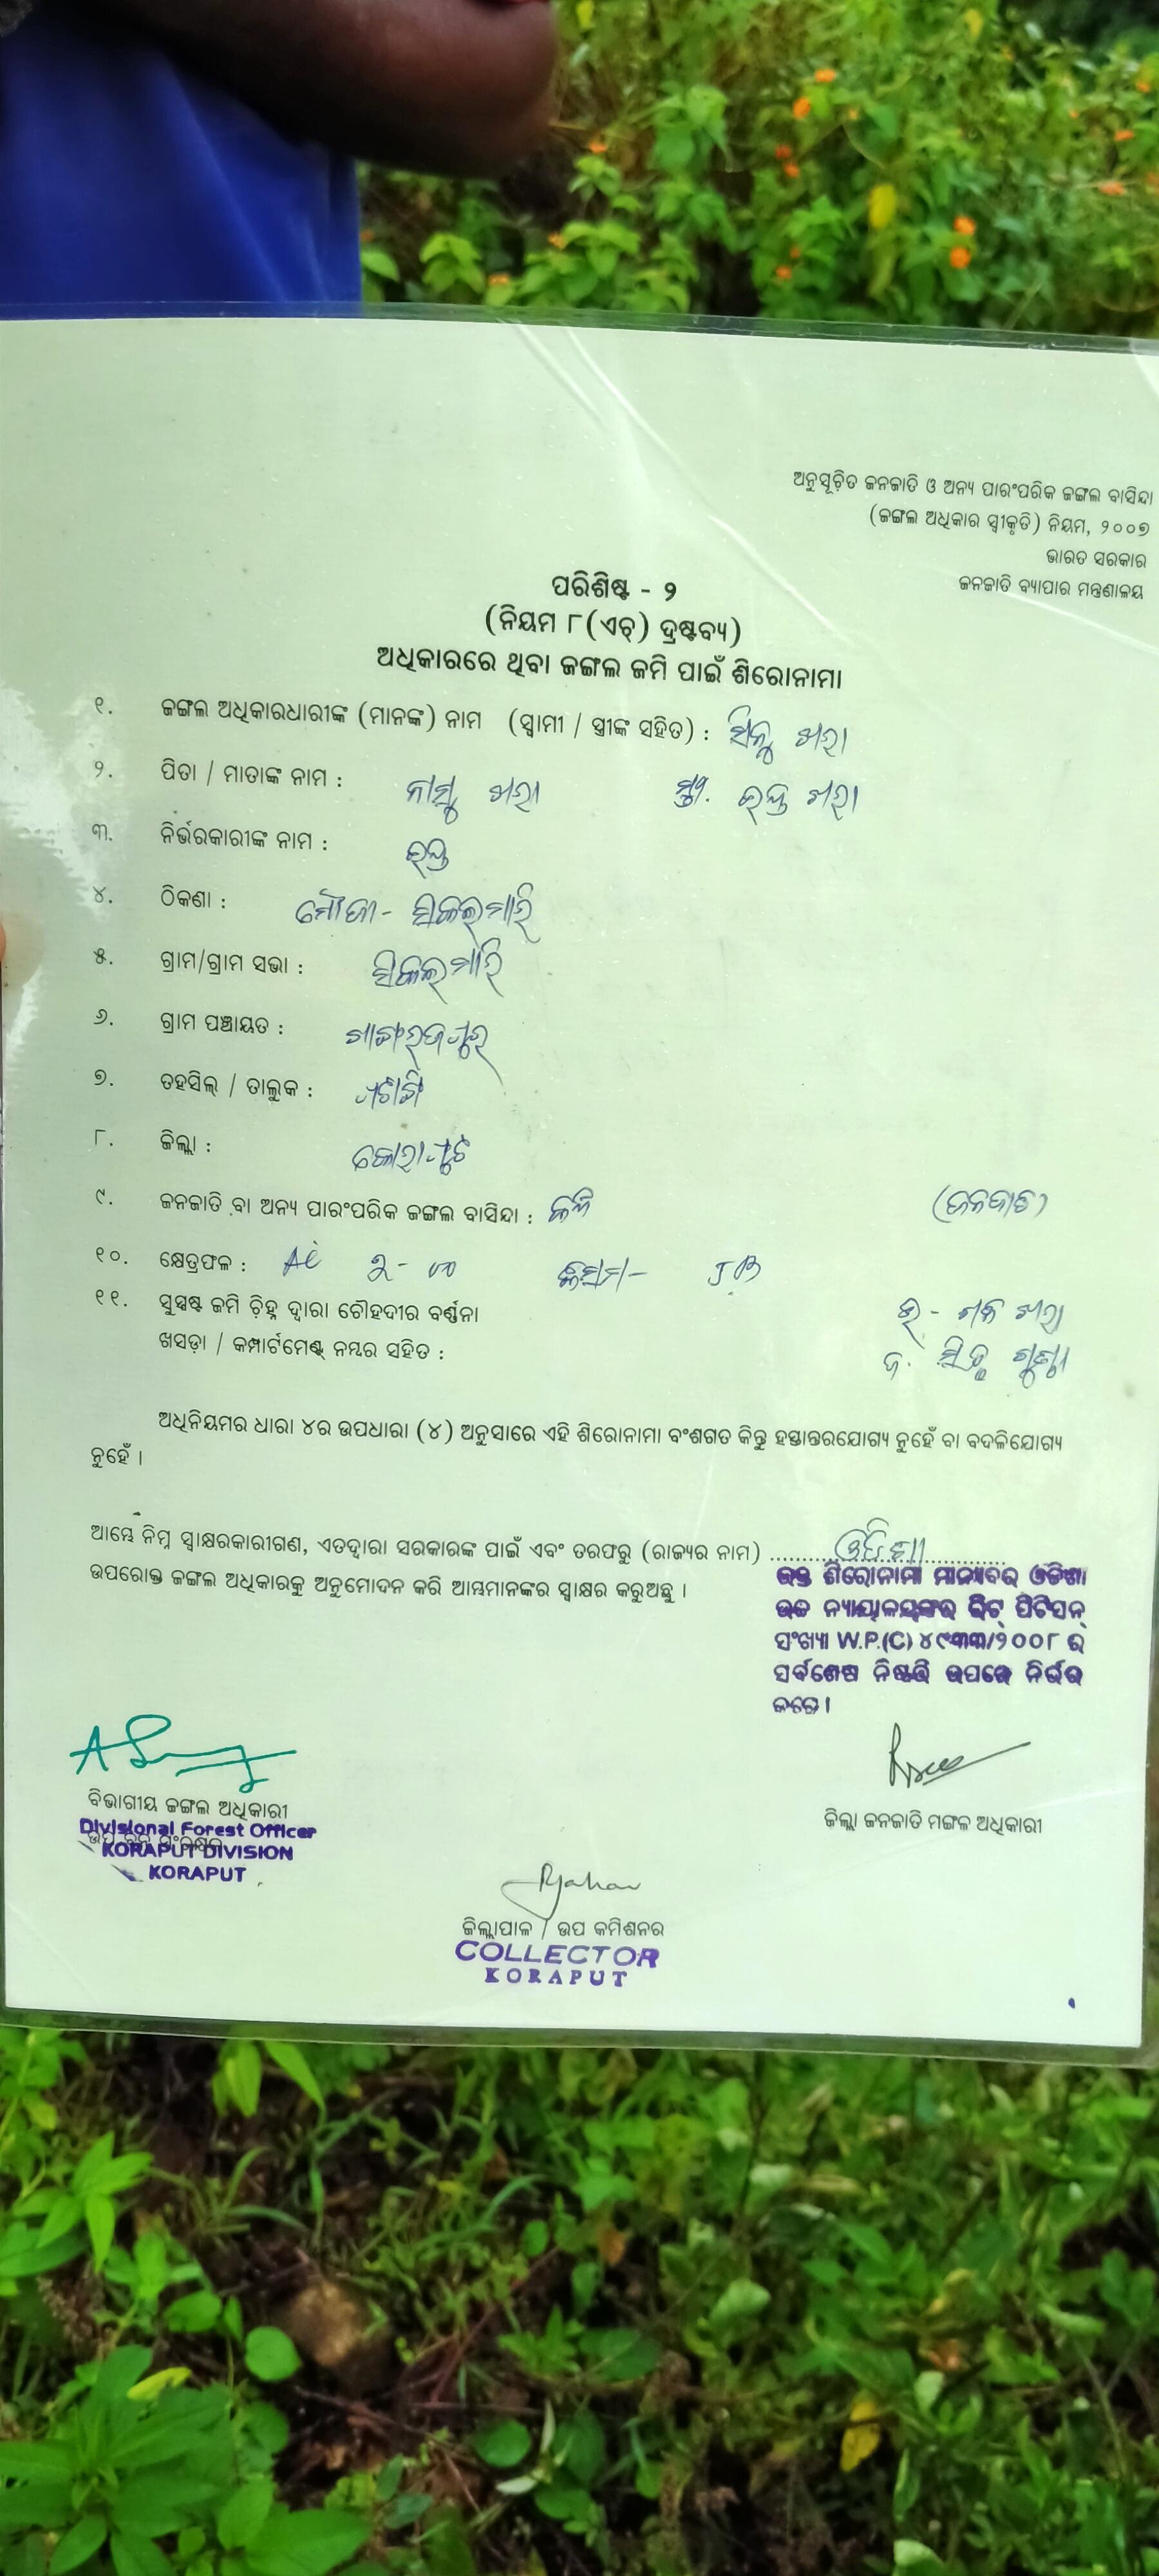 ଅନୁସୂଚିତ ଜନଜାତି ଓ ଅନ୍ୟ ପାରଂପରିକ ଜଙ୍ଗଲ ବାସିନ୍ଦା
(ଜଙ୍ଗଲ ଅଧିକାର ସ୍ୱୀକୃତି) ନିୟମ, ୨୦୦୭
ଭାରତ ସରକାର
ଜନଜାତି ବ୍ୟାପାର ମନ୍ତ୍ରଣାଳୟ
ପରିଶିଷ୍ଟ - ୨
(ନିୟମ ୮(ଏଚ୍) ଦ୍ରଷ୍ଟବ୍ୟ)
ଅଧିକାରରେ ଥିବା ଜଙ୍ଗଲ ଜମି ପାଇଁ ଶିରୋନାମା
୧. ଜଙ୍ଗଲ ଅଧିକାରଧାରୀଙ୍କ (ମାନଙ୍କ) ନାମ (ସ୍ୱାମୀ / ସ୍ତ୍ରୀଙ୍କ ସହିତ) : ଖରା
୨. ପିତା / ମାତାଙ୍କ ନାମ : ଖରା ସ୍ତ୍ରୀ. ଖରା
୩. ନିର୍ଭରକାରୀଙ୍କ ନାମ :
୪. ଠିକଣା : ମୌଜା-
୫. ଗ୍ରାମ/ଗ୍ରାମ ସଭା :
୬. ଗ୍ରାମ ପଞ୍ଚାୟତ :
୭. ତହସିଲ୍ / ତାଲୁକ :
୮. ଜିଲ୍ଲା : କୋରାପୁଟ
୯. ଜନଜାତି ବା ଅନ୍ୟ ପାରଂପରିକ ଜଙ୍ଗଲ ବାସିନ୍ଦା : (ଜନଜାତି)
୧୦. କ୍ଷେତ୍ରଫଳ : Ac ୨-୦୦ କିସମ-
୧୧. ସୁସ୍ପଷ୍ଟ ଜମି ଚିହ୍ନ ଦ୍ୱାରା ଚୌହଦୀର ବର୍ଣ୍ଣନା ଉ - ଖରା
ଖସଡ଼ା / କମ୍ପାର୍ଟମେଣ୍ଟ ନମ୍ବର ସହିତ : ଦ.
ଅଧିନିୟମର ଧାରା ୪ର ଉପଧାରା (୪) ଅନୁସାରେ ଏହି ଶିରୋନାମା ବଂଶଗତ କିନ୍ତୁ ହସ୍ତାନ୍ତରଯୋଗ୍ୟ ନୁହେଁ ବା ବଦଳିଯୋଗ୍ୟ
ନୁହେଁ ।
ଆମ୍ଭେ ନିମ୍ନ ସ୍ୱାକ୍ଷରକାରୀଗଣ, ଏତଦ୍ୱାରା ସରକାରଙ୍କ ପାଇଁ ଏବଂ ତରଫରୁ (ରାଜ୍ୟର ନାମ) ......ଓଡିଶା......
ଉପରୋକ୍ତ ଜଙ୍ଗଲ ଅଧିକାରକୁ ଅନୁମୋଦନ କରି ଆମ୍ଭମାନଙ୍କର ସ୍ୱାକ୍ଷର କରୁଅଛୁ ।
ଉକ୍ତ ଶିରୋନାମା ମାନ୍ୟବର ଓଡିଶା
ଉଚ୍ଚ ନ୍ୟାୟାଳୟଙ୍କର ରିଟ୍ ପିଟିସନ୍
ସଂଖ୍ୟା W.P.(C) ୪୯୩୩/୨୦୦୮ ର
ସର୍ବଶେଷ ନିଷ୍ପତ୍ତି ଉପରେ ନିର୍ଭର
କରେ ।
ବିଭାଗୀୟ ଜଙ୍ଗଲ ଅଧିକାରୀ
Divisional Forest Officer
KORAPUT DIVISION
KORAPUT
ଜିଲ୍ଲା ଜନଜାତି ମଙ୍ଗଳ ଅଧିକାରୀ
ଜିଲ୍ଲାପାଳ / ଉପ କମିଶନର
COLLECTOR
KORAPUT